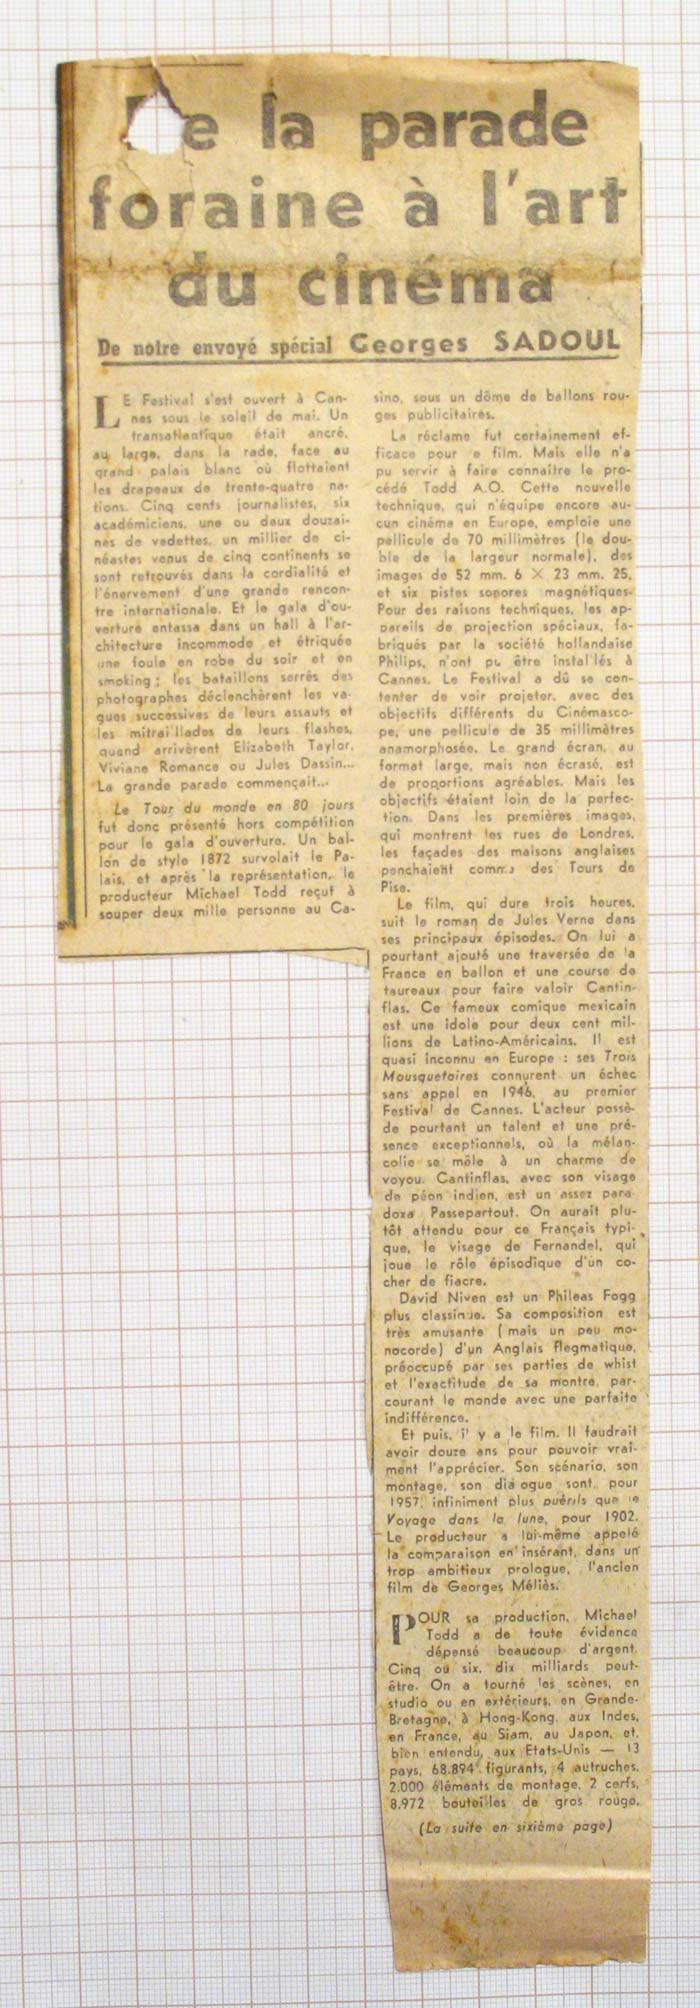 De la parade
foraine à l'art
du cinéma
De notre envoyé spécial Georges SADOUL
LE Festival s'est ouvert à Can-
nes sous le soleil de mai. Un
transatlantique était ancré,
au large, dans la rade, face au
grand palais blanc où flottaient
les drapeaux de trente-quatre na-
tions. Cinq cents journalistes, six
académiciens, une ou deux douzai-
nes de vedettes, un millier de ci-
néastes venus de cinq continents se
sont retrouvés dans la cordialité et
l'énervement d'une grande rencon-
tre internationale. Et le gala d'ou-
verture entassa dans un hall à l'ar-
chitecture incommode et étriquée
une foule en robe du soir et en
smoking ; les bataillons serrés des
photographes déclenchèrent les va-
gues successives de leurs assauts et
les mitraillades de leurs flashes,
quand arrivèrent Elizabeth Taylor,
Viviane Romance ou Jules Dassin...
La grande parade commençait...
Le Tour du monde en 80 jours
fut donc présenté hors compétition
pour le gala d'ouverture. Un bal-
lon de style 1872 survolait le Pa-
lais, et après la représentation, le
producteur Michael Todd reçut à
souper deux mille personne au Ca-
sino, sous un dôme de ballons rou-
ges publicitaires.
La réclame fut certainement ef-
ficace pour e film. Mais elle n'a
pu servir à faire connaître le pro-
cédé Todd A.O. Cette nouvelle
technique, qui n'équipe encore au-
cun cinéma en Europe, emploie une
pellicule de 70 millimètres (le dou-
ble de la largeur normale), des
images de 52 mm. 6 × 23 mm. 25,
et six pistes sonores magnétiques.
Pour des raisons techniques, les ap-
pareils de projection spéciaux, fa-
briqués par la société hollandaise
Philips, n'ont pu être installés à
Cannes. Le Festival a dû se con-
tenter de voir projeter, avec des
objectifs différents du Cinémasco-
pe, une pellicule de 35 millimètres
anamorphosée. Le grand écran, au
format large, mais non écrasé, est
de proportions agréables. Mais les
objectifs étaient loin de la perfec-
tion. Dans les premières images,
qui montrent les rues de Londres,
les façades des maisons anglaises
penchaient comme des Tours de
Pise.
Le film, qui dure trois heures,
suit le roman de Jules Verne dans
ses principaux épisodes. On lui a
pourtant ajouté une traversée de la
France en ballon et une course de
taureaux pour faire valoir Cantin-
flas. Ce fameux comique mexicain
est une idole pour deux cent mil-
lions de Latino-Américains. Il est
quasi inconnu en Europe : ses Trois
Mousquetaires connurent un échec
sans appel en 1946, au premier
Festival de Cannes. L'acteur possè-
de pourtant un talent et une pré-
sence exceptionnels, où la mélan-
colie se mêle à un charme de
voyou. Cantinflas, avec son visage
de péon indien, est un assez para-
doxa Passepartout. On aurait plu-
tôt attendu pour ce Français typi-
que, le visage de Fernandel, qui
joue le rôle épisodique d'un co-
cher de fiacre.
David Niven est un Phileas Fogg
plus classique. Sa composition est
très amusante (mais un peu mo-
nocorde) d'un Anglais flegmatique,
préoccupé par ses parties de whist
et l'exactitude de sa montre, par-
courant le monde avec une parfaite
indifférence.
Et puis, i' y a le film. Il faudrait
avoir douze ans pour pouvoir vrai-
ment l'apprécier. Son scénario, son
montage, son dia ogue sont, pour
1957, infiniment plus puérils que le
Voyage dans la lune, pour 1902.
Le producteur a lui-même appelé
la comparaison en insérant, dans un
trop ambitieux prologue, l'ancien
film de Georges Méliès.
POUR sa production, Michael
Todd a de toute évidence
dépensé beaucoup d'argent.
Cinq ou six, dix milliards peut-
être. On a tourné les scènes, en
studio ou en extérieurs, en Grande-
Bretagne, à Hong-Kong, aux Indes,
en France, au Siam, au Japon, et,
bien entendu, aux Etats-Unis — 13
pays, 68.894 figurants, 4 autruches,
2.000 éléments de montage, 2 cerfs,
8.972 bouteilles de gros rouge,
(La suite en sixième page)